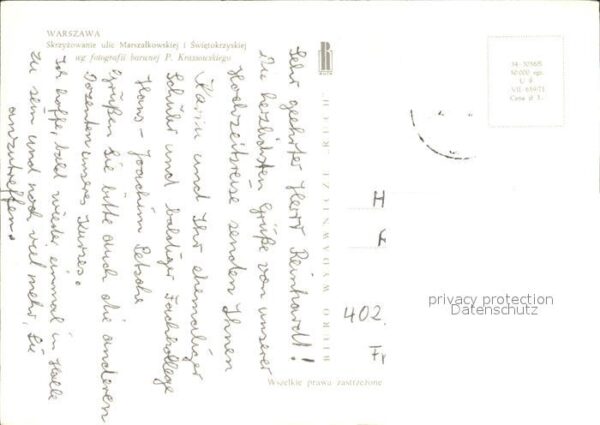 WARSZAWA
Skrzyżowanie ulic Marszałkowskiej i Świętokrzyskiej
wg fotografii barwnej P. Krassowskiego
Sehr geehrter Herr Reinhardt!
Die herzlichsten Grüße von unserer
Hochzeitsreise senden Ihnen
Karin und Ihr ehemaliger
Schüler und baldiger Fachkollege
Hans-Joachim
Grüßen Sie bitte auch die anderen
Dozenten unseres Kurses.
Ich hoffe, bald wieder einmal in Halle
zu sein und noch viel mehr, Sie
anzutreffen.
BIURO WYDAWNICZE „RUCH”
VII 659/71
Cena zł
H
402.
Fr
privacy protection
Datenschutz
Wszelkie prawa zastrzeżone